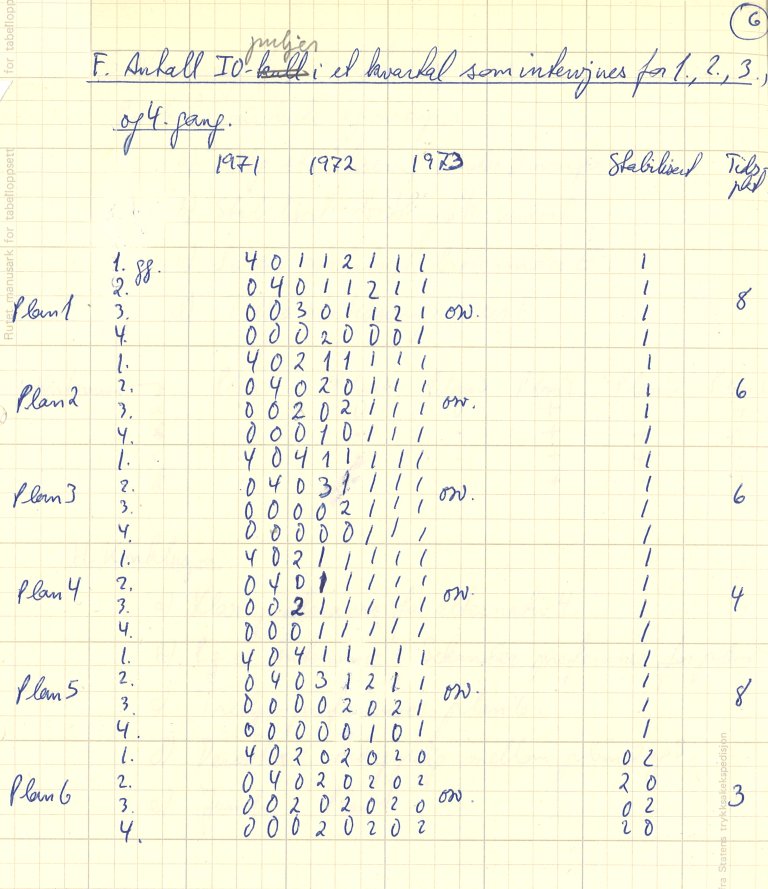 6
puljer
F. Antall IO-kull i et kvartal som intervjues for 1., 2., 3.,
og 4. gang.
1971 1972 1973 Stabilisert Tids-
pkt
1. gg. 4 0 1 1 2 1 1 1 1
2. 0 4 0 1 1 2 1 1 1
Plan 1 3. 0 0 3 0 1 1 2 1 osv. 1 8
4. 0 0 0 2 0 0 0 1 1
1. 4 0 2 1 1 1 1 1 1
2. 0 4 0 2 0 1 1 1 1
Plan 2 3. 0 0 2 0 2 1 1 1 osv. 1 6
4. 0 0 0 1 0 1 1 1 1
1. 4 0 4 1 1 1 1 1 1
2. 0 4 0 3 1 1 1 1 1
Plan 3 3. 0 0 0 0 2 1 1 1 osv. 1 6
4. 0 0 0 0 0 1 1 1 1
1. 4 0 2 1 1 1 1 1 1
2. 0 4 0 1 1 1 1 1 1
Plan 4 3. 0 0 2 1 1 1 1 1 osv. 1 4
4. 0 0 0 1 1 1 1 1 1
1. 4 0 4 1 1 1 1 1 1
2. 0 4 0 3 1 2 1 1 1
Plan 5 3. 0 0 0 0 2 0 2 1 osv. 1 8
4. 0 0 0 0 0 1 0 1 1
1. 4 0 2 0 2 0 2 0 0 2
2. 0 4 0 2 0 2 0 2 2 0
Plan 6 3. 0 0 2 0 2 0 2 0 osv. 0 2 3
4. 0 0 0 2 0 2 0 2 2 0
for tabellopp
Rutet manusark for tabelloppsett
fra Statens trykksakekspedisjon